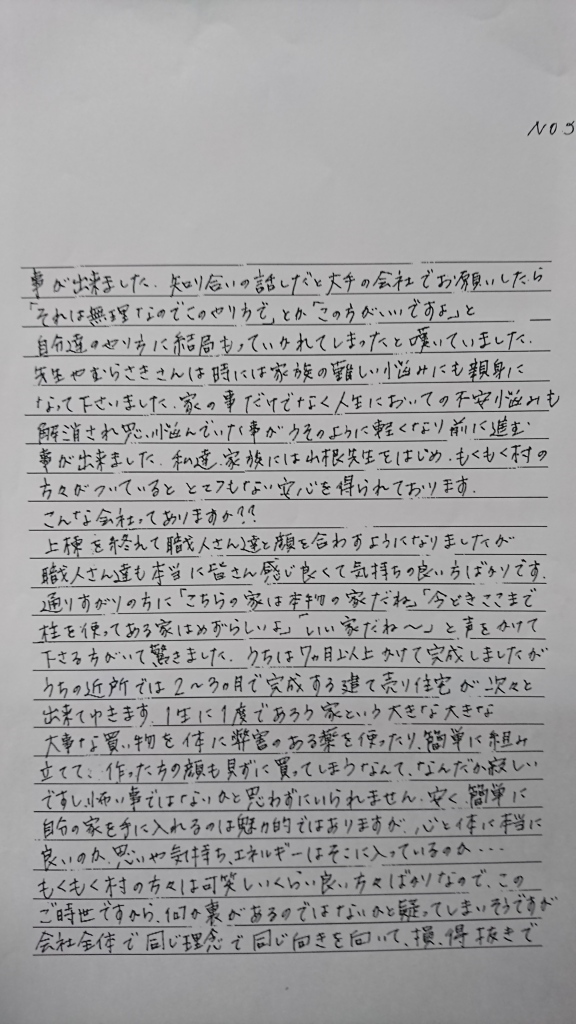 NO5
事が出来ました。知り合いの話しだと大手の会社でお願いしたら
「それは無理なのでこのやり方で」とか「この方がいいですよ」と
自分達のやり方に結局もっていかれてしまったと嘆いていました。
先生やむらさきさんは時には家族の難しい悩みにも親身に
なって下さいました。家の事だけでなく人生においての不安悩みも
解消され思い悩んでいた事がうそのように軽くなり前に進む
事が出来ました。私達、家族には山根先生をはじめ、もくもく村の
方々がついているととてつもない安心を得られております。
こんな会社ってありますか??
上棟を終えて職人さん達と顔を合わすようになりましたが
職人さん達も本当に皆さん感じ良くて気持ちの良い方ばかりです。
通りすがりの方に「こちらの家は本物の家だね」「今どきここまで
柱を使ってある家はめずらしいよ」「いい家だね〜」と声をかけて
下さる方がいて驚きました。うちは7ヵ月以上かけて完成しましたが
うちの近所では2〜3ヵ月で完成する建て売り住宅が次々と
出来てゆきます。1生に1度であろう家という大きな大きな
大事な買い物を体に弊害のある薬を使ったり、簡単に組み
立てて、作った方の顔も見ずに買ってしまうなんて、なんだか寂しい
ですし怖い事ではないかと思わずにいられません。安く、簡単に
自分の家を手に入れるのは魅力的ではありますが、心と体に本当に
良いのか、思いや気持ち、エネルギーはそこに入っているのか・・・
もくもく村の方々は可笑しいくらい良い方々ばかりなので、この
ご時世ですから、何か裏があるのではないかと疑ってしまいそうですが
会社全体で同じ理念で同じ向きを向いて、損、得抜きで